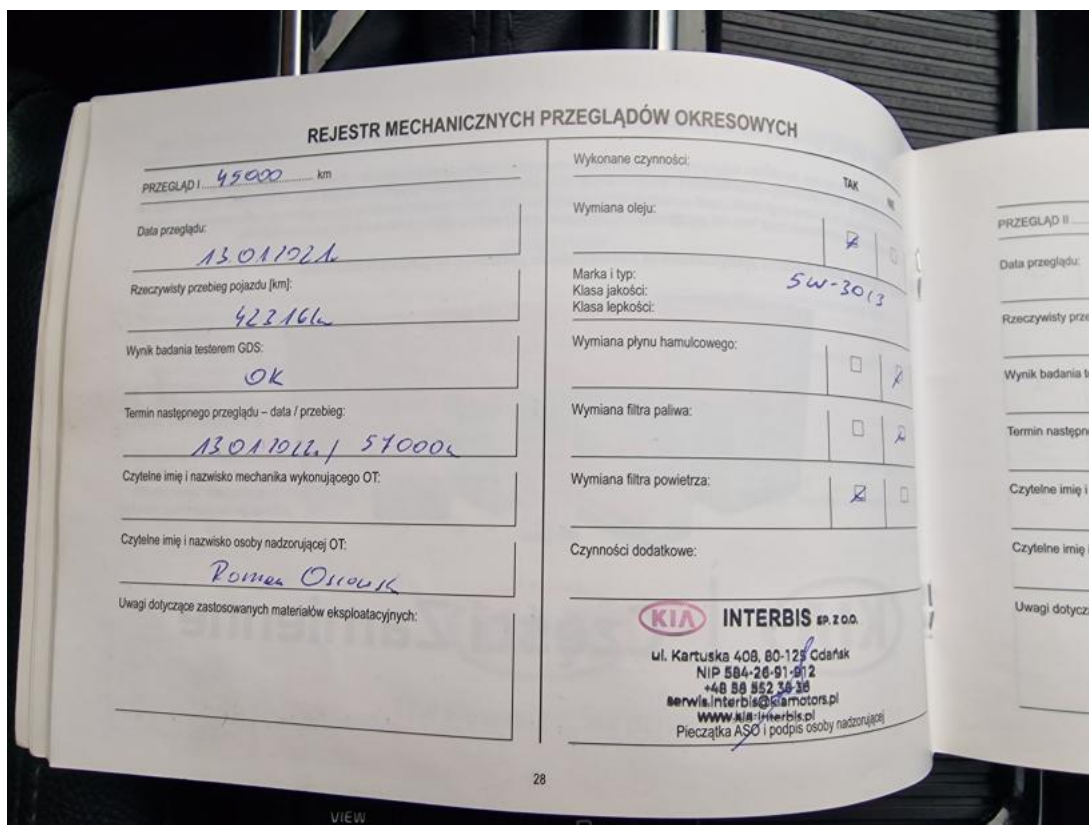 REJESTR MECHANICZNYCH PRZEGLĄDÓW OKRESOWYCH
PRZEGLĄD I 45000 km
Data przeglądu:
13.01.2021r
Rzeczywisty przebieg pojazdu [km]:
42316km
Wynik badania testerem GDS:
OK
Termin następnego przeglądu – data / przebieg:
13.01.2022r /
Czytelne imię i nazwisko mechanika wykonującego OT:
Czytelne imię i nazwisko osoby nadzorującej OT:
Roman
Uwagi dotyczące zastosowanych materiałów eksploatacyjnych:
Wykonane czynności:
TAK NIE
Wymiana oleju:
Marka i typ:
Klasa jakości:
Klasa lepkości:
5W-30
Wymiana płynu hamulcowego:
Wymiana filtra paliwa:
Wymiana filtra powietrza:
Czynności dodatkowe:
KIA INTERBIS SP. Z O.O.
ul. Kartuska 408, 80-125 Gdańsk
NIP 584-26-91-912
+48 58 552 36 36
serwis.interbis@kiamotors.pl
www.kia-interbis.pl
Pieczątka ASO i podpis osoby nadzorującej
28
PRZEGLĄD II
Data przeglądu:
Rzeczywisty prze
Wynik badania t
Termin następn
Czytelne imię i
Czytelne imię
Uwagi dotycz
VIEW